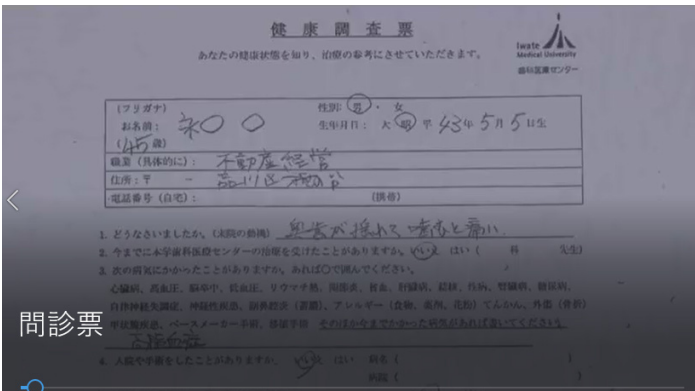 健康調査票
あなたの健康状態を知り、治療の参考にさせていただきます。
Iwate
Medical University
歯科医療センター
(フリガナ)
性別: 男・女
お名前: 永〇 〇
生年月日: 大 昭 平 43年5月5日生
(45歳)
職業(具体的に): 不動産経営
住所:〒 - 品川区
電話番号(自宅): (携帯)
1. どうなさいましたか。(来院の動機) 奥歯が揺れて噛むと痛い
2. 今までに本学歯科医療センターの治療を受けたことがありますか。いいえ はい( 科 先生)
3. 次の病気にかかったことがありますか。あれば〇で囲んでください。
心臓病、高血圧、脳卒中、低血圧、リウマチ熱、関節炎、貧血、肝臓病、結核、性病、腎臓病、糖尿病、
自律神経失調症、神経性疾患、副鼻腔炎(蓄膿)、アレルギー(食物、薬剤、花粉)てんかん、外傷(骨折)
甲状腺疾患、ペースメーカー手術、移植手術 そのほか今までかかった病気があれば書いてください。
問診票
4. 入院や手術をしたことがありますか。いいえ はい 病名(
)
病院(
)